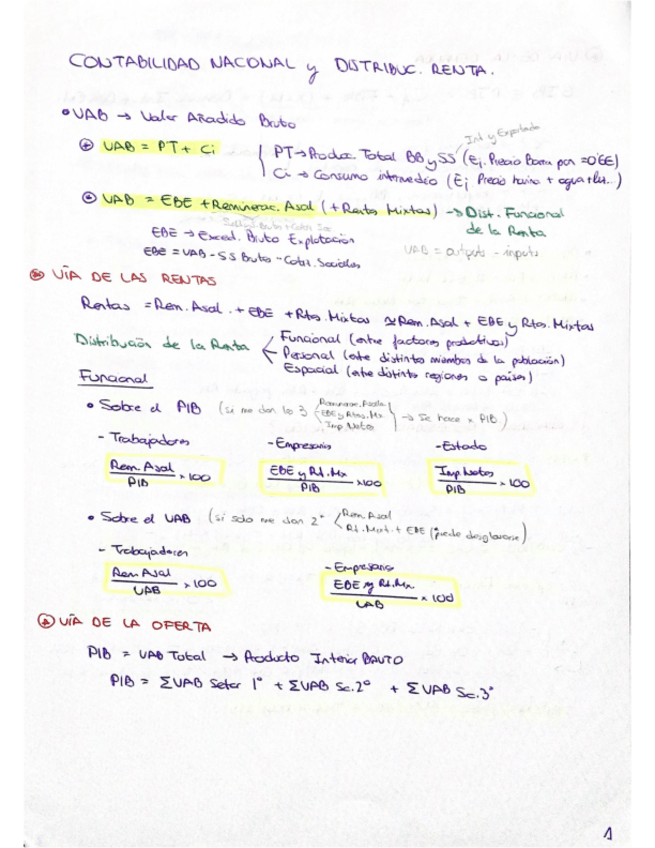 CONTABILIDAD NACIONAL y DISTRIBUC. RENTA.
• VAB → Valor Añadido Bruto
VAB = PT + Ci
Int y Exportado
PT → Produc. Total BB y SS (Ej. Precio Barra pan = 0'6€)
Ci → Consumo intermedio (Ej Precio harina + agua + luz...)
VAB = EBE + Remunerac. Asal (+ Rentas Mixtas) → Dist. Funcional de la Renta
Sueldos Brutos + Cotri. Soc
EBE → Exced. Bruto Explotación
EBE = VAB - SS Bruto - Cotri. Sociales
VAB = outputs - inputs
VÍA DE LAS RENTAS
Rentas = Rem. Asal. + EBE + Rtas. Mixtas ≃ Rem. Asal + EBE y Rtas. Mixtas
Distribución de la Renta
Funcional (entre factores productivos)
Personal (entre distintos miembros de la población)
Espacial (entre distintas regiones o países)
Funcional
• Sobre el PIB (si me dan los 3
Remunerac. Asala.
EBE y Rtas. Mx
Imp. Netos
→ Se hace x PIB)
- Trabajadores
- Empresario
- Estado
Rem. Asal / PIB × 100
EBE y Rt. Mx / PIB × 100
Imp Netos / PIB × 100
• Sobre el VAB (si solo me dan 2
Rem. Asal
Rt. Mixt. + EBE (puede desglosarse)
- Trabajadores
- Empresario
Rem Asal / VAB × 100
EBE y Rt. Mx / VAB × 100
VÍA DE LA OFERTA
PIB = VAB Total → Producto Interior BRUTO
PIB = ΣVAB Setor 1º + ΣVAB Sc. 2º + ΣVAB Sc. 3º
1